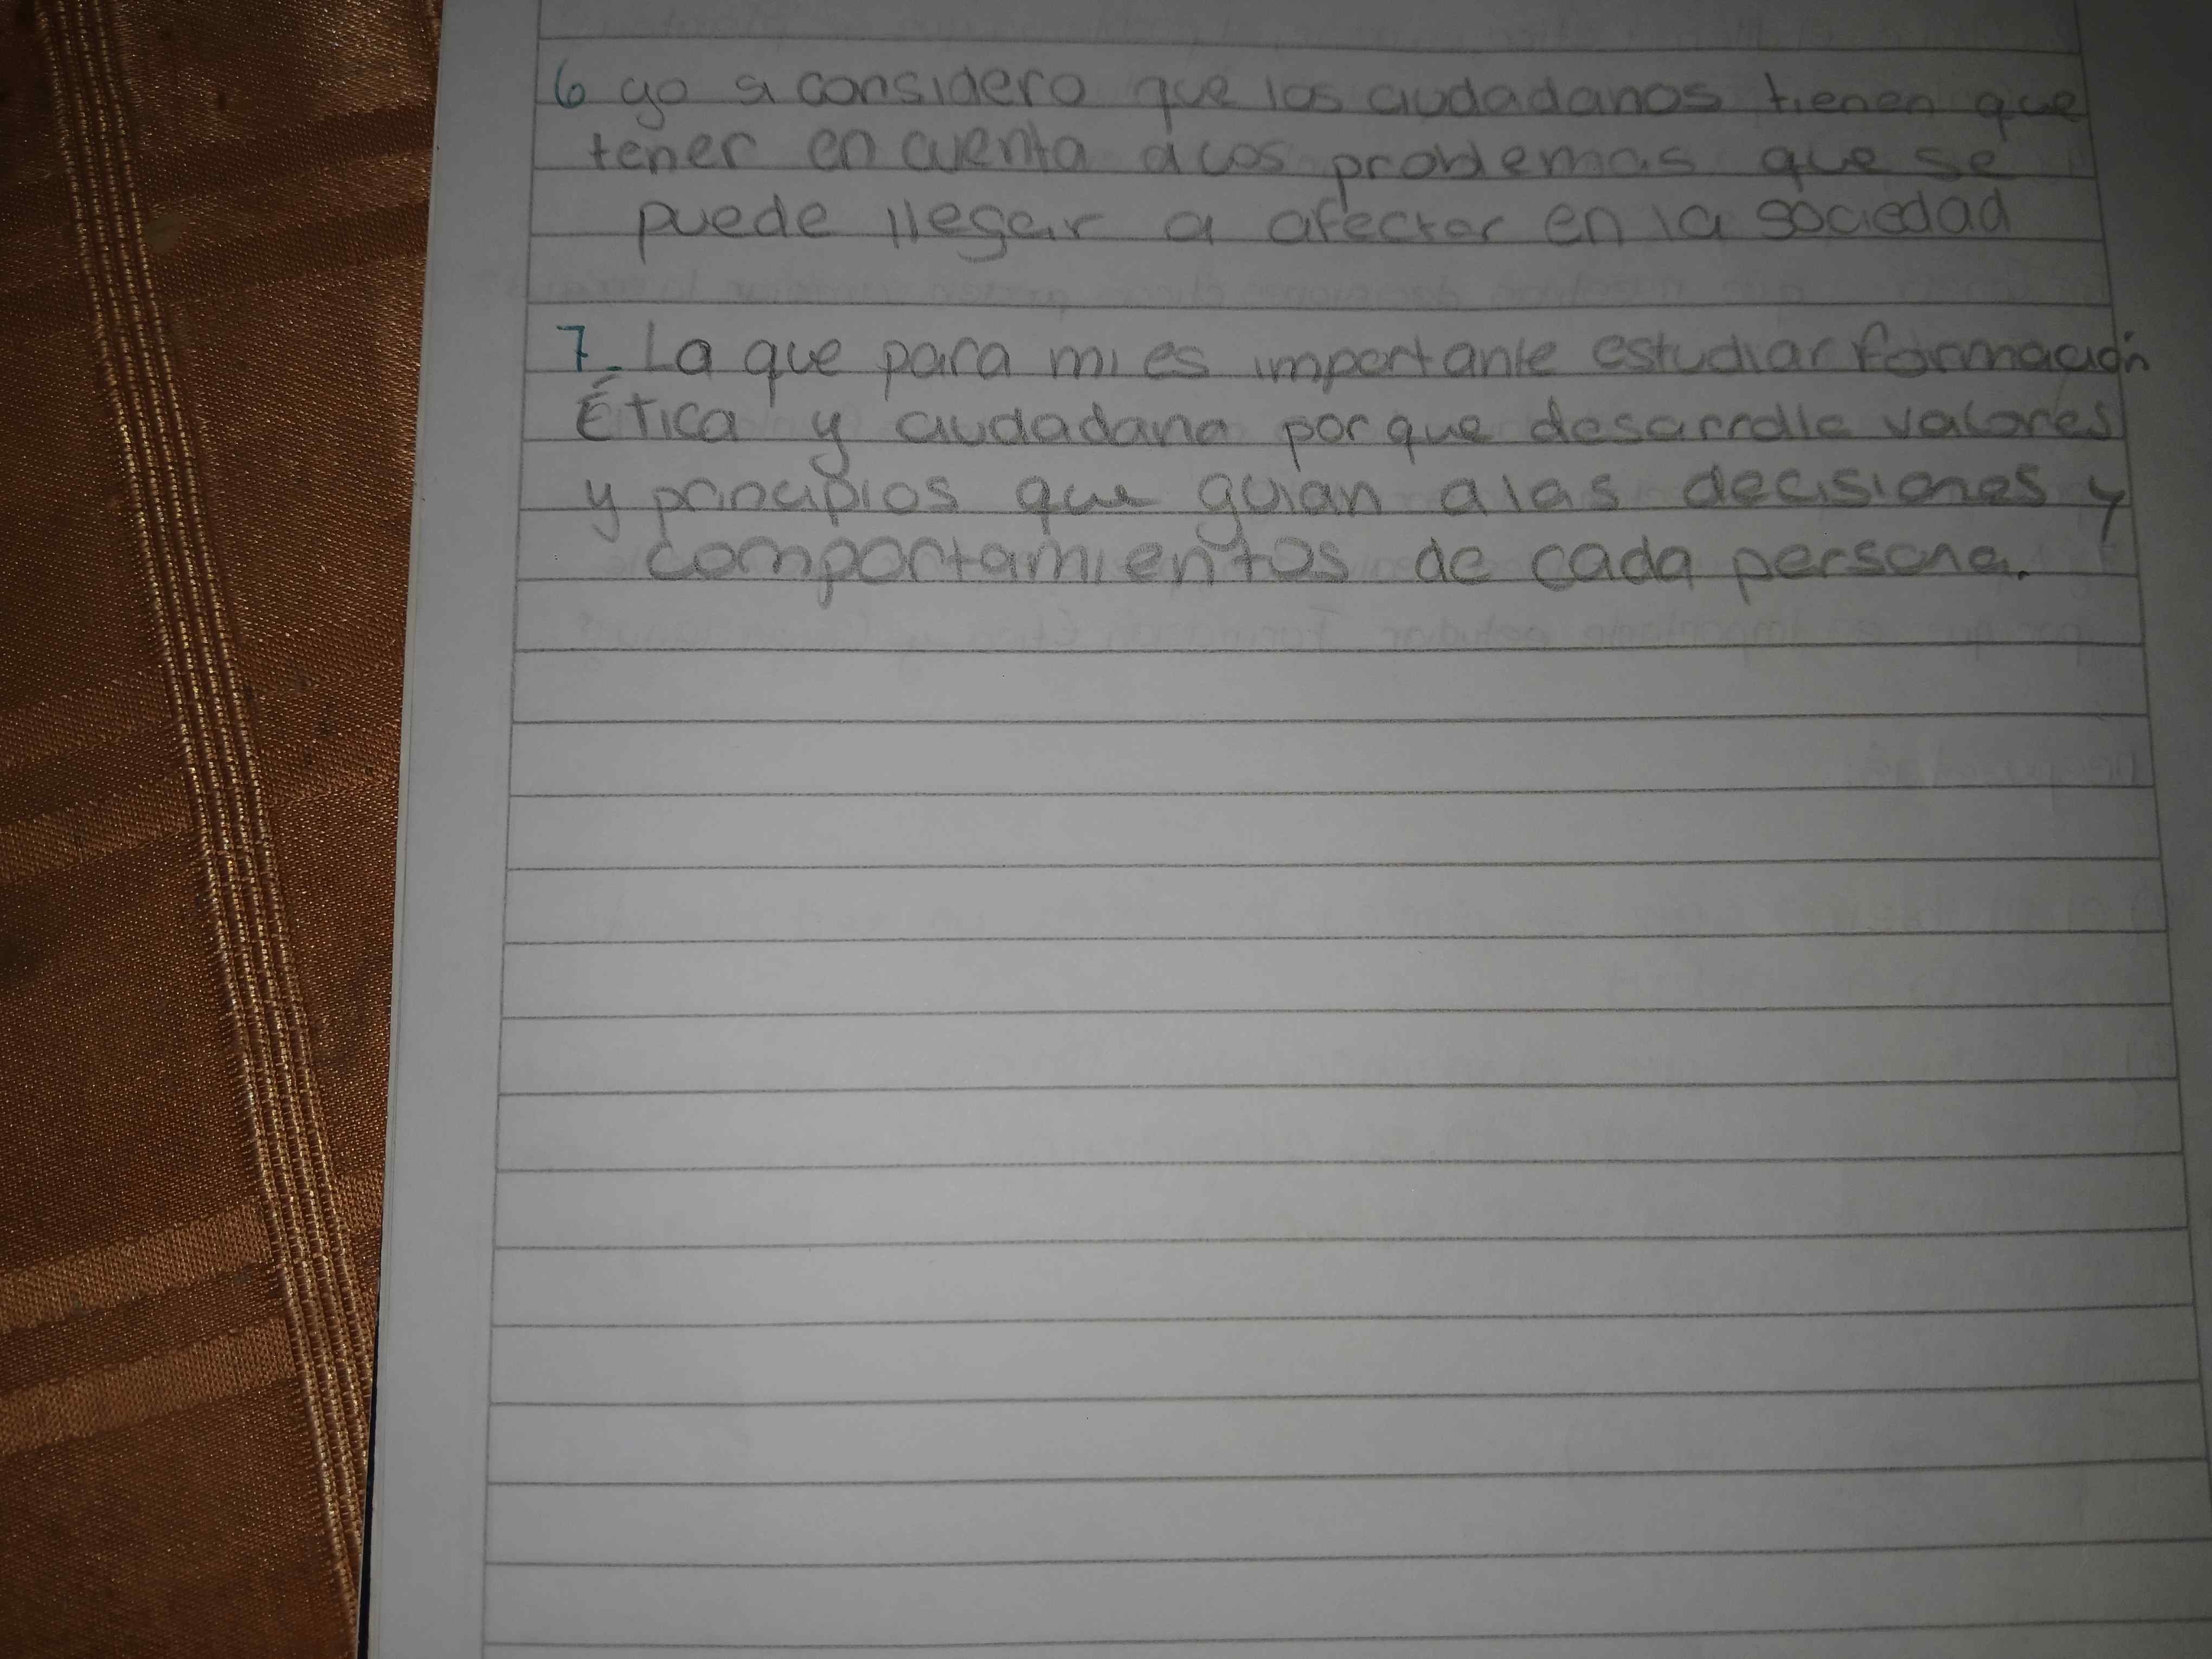 6 yo a considero que los ciudadanos tienen que
tener en cuenta a los problemas que se
puede llegar a afectar en la sociedad
7. La que para mi es importante estudiar formación
Ética y ciudadana porque desarrolla valores
y principios que guian a las decisiones y
comportamientos de cada persona.